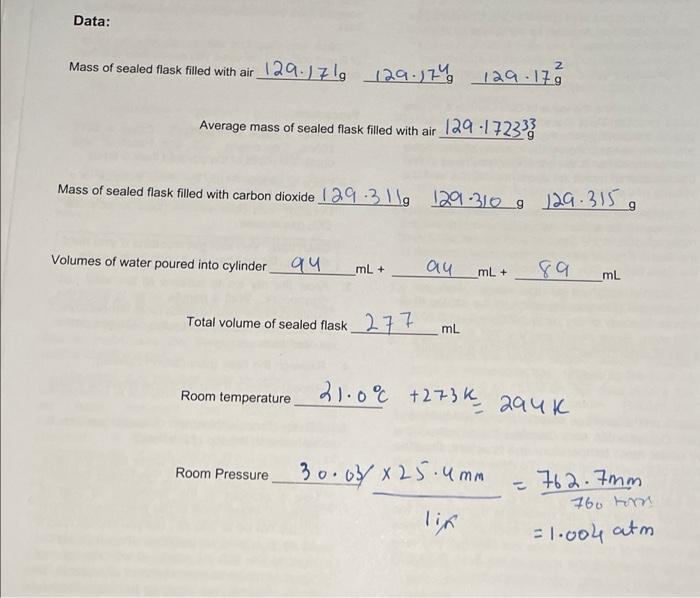 Data:
Mass of sealed flask filled with air 129.171g 129.174g 129.172g
Average mass of sealed flask filled with air 129.17233g
Mass of sealed flask filled with carbon dioxide 129.311g 129.310 g 129.315 g
Volumes of water poured into cylinder 94 mL + 94 mL + 89 mL
Total volume of sealed flask 277 mL
Room temperature 21.0°C +273K = 294K
Room Pressure 30.03 × 25.4 mm = 762.7mm
1in 760
= 1.004 atm